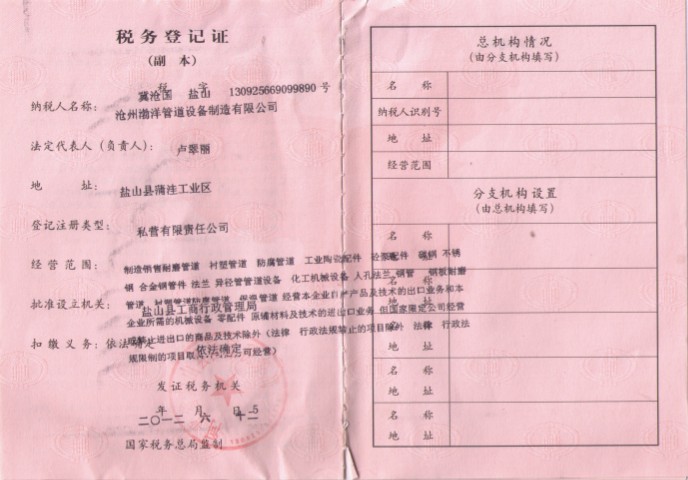 税务登记证
(副 本)
税 字
冀沧国 盐山 130925669099890 号
纳税人名称：
沧州渤洋管道设备制造有限公司
法定代表人（负责人）： 卢翠丽
地 址： 盐山县蒲洼工业区
登记注册类型： 私营有限责任公司
经营范围：
制造销售耐磨管道 衬塑管道 防腐管道 工业陶瓷配件 砼泵配件 不锈
钢 合金钢管件 法兰 异径管管道设备 化工机械设备 人孔法兰 钢管 钢板耐磨
管道 衬塑管道防腐管道 保温管道 经营本企业自产产品及技术的出口业务和本
批准设立机关： 盐山县工商行政管理局
企业所需的机械设备 零配件 原辅材料及技术的进出口业务 但国家限定公司经营
或禁止进出口的商品及技术除外（法律 行政法规禁止的项目除外 法律 行政法
扣缴义务：依法确定 依法确定
规限制的项目取 可经营）
发证税务机关
年 月 日
二〇一二 六 十二 5
国家税务总局监制
总机构情况
(由分支机构填写)
名 称
纳税人识别号
地 址
经营范围
分支机构设置
(由总机构填写)
名 称
地 址
名 称
地 址
名 称
地 址
名 称
地 址
名 称
地 址